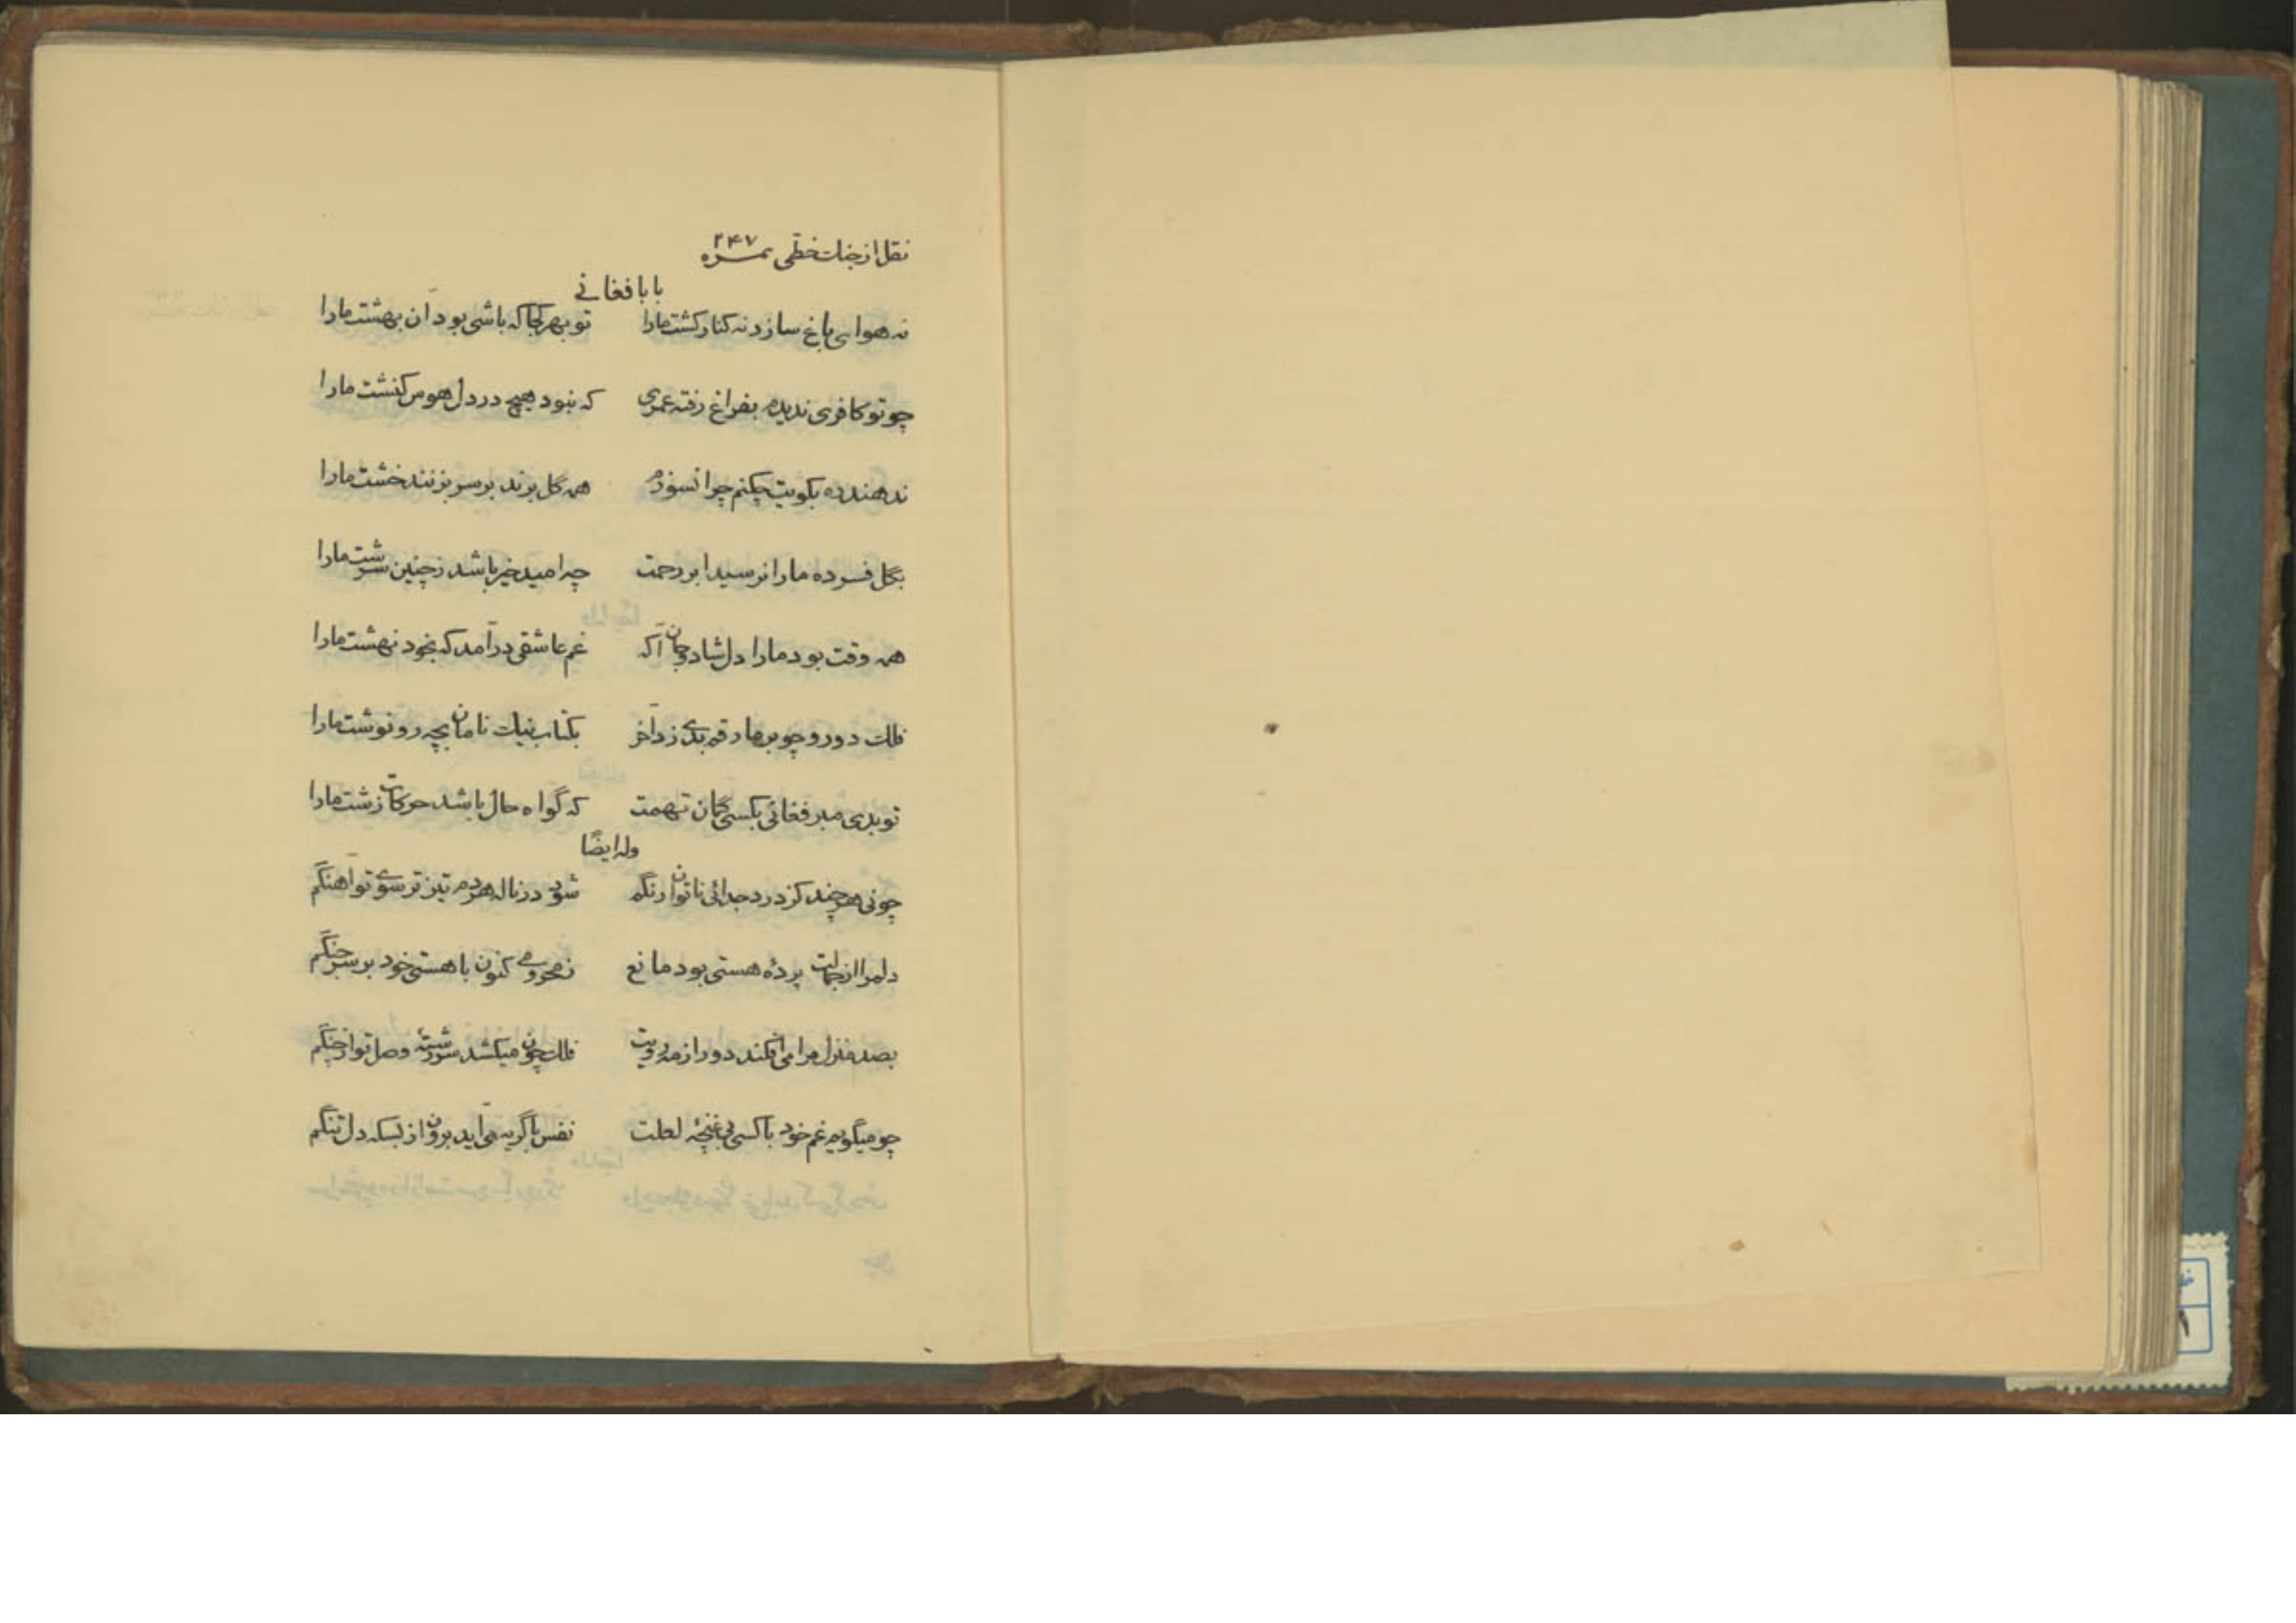 نقل از جنگ خطی نمره ۲۴۷
بابا فغانے
نه هوای باغ سازد نه کنار کشت مارا تو بهر کجا که باشی بود آن بهشت مارا
چو تو کافری ندیده بفراغ رفته عمری که نبود هیچ در دل هوس کنشت مارا
ندهند ره بکویت چکنم چرا نسوزم همه گل برند بر سر بزنند خشت مارا
بگل فسرده ما را نرسید ابر رحمت چه امید خیر باشد ز چنین سرشت مارا
همه وقت بود مارا دل شاد و جان آگه غم عاشقی درآمد که بخود نهشت مارا
فلک دورو چو بر ما رقم بدی زد آخر بکتاب نیک نامان بچه رو نوشت مارا
تو بدی مبر فغانی بکسی گمان تهمت که گواه حال باشد حرکات زشت مارا
وله ایضًا
چونی هر چند کز درد جدائی ناتوان رنگم شود در ناله هر دم تیز تر سوے تو آهنگم
دلمرا از جمالت پردهٔ هستی بود مانع ز محرومے کنون با هستی خود بر سر جنگم
بصد منزل مرا می افکند دور از مه رویت فلک چون میکشد سر رشتهٔ وصل تو از چنگم
چو میگویم غم خود با کسی بی غنچهٔ لعلت نفس با گریه می آید برون از بسکه دل تنگم